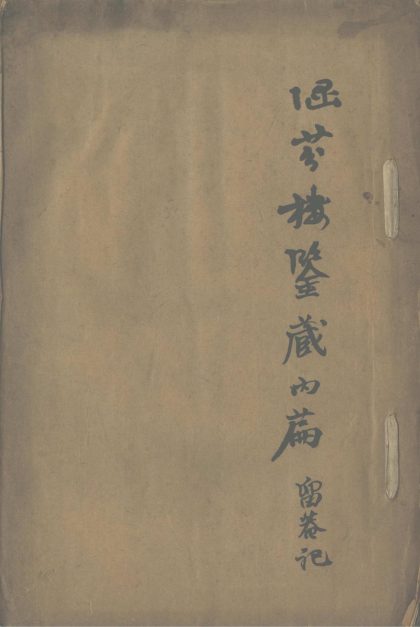 涵芬樓鑒藏內篇 留菴記